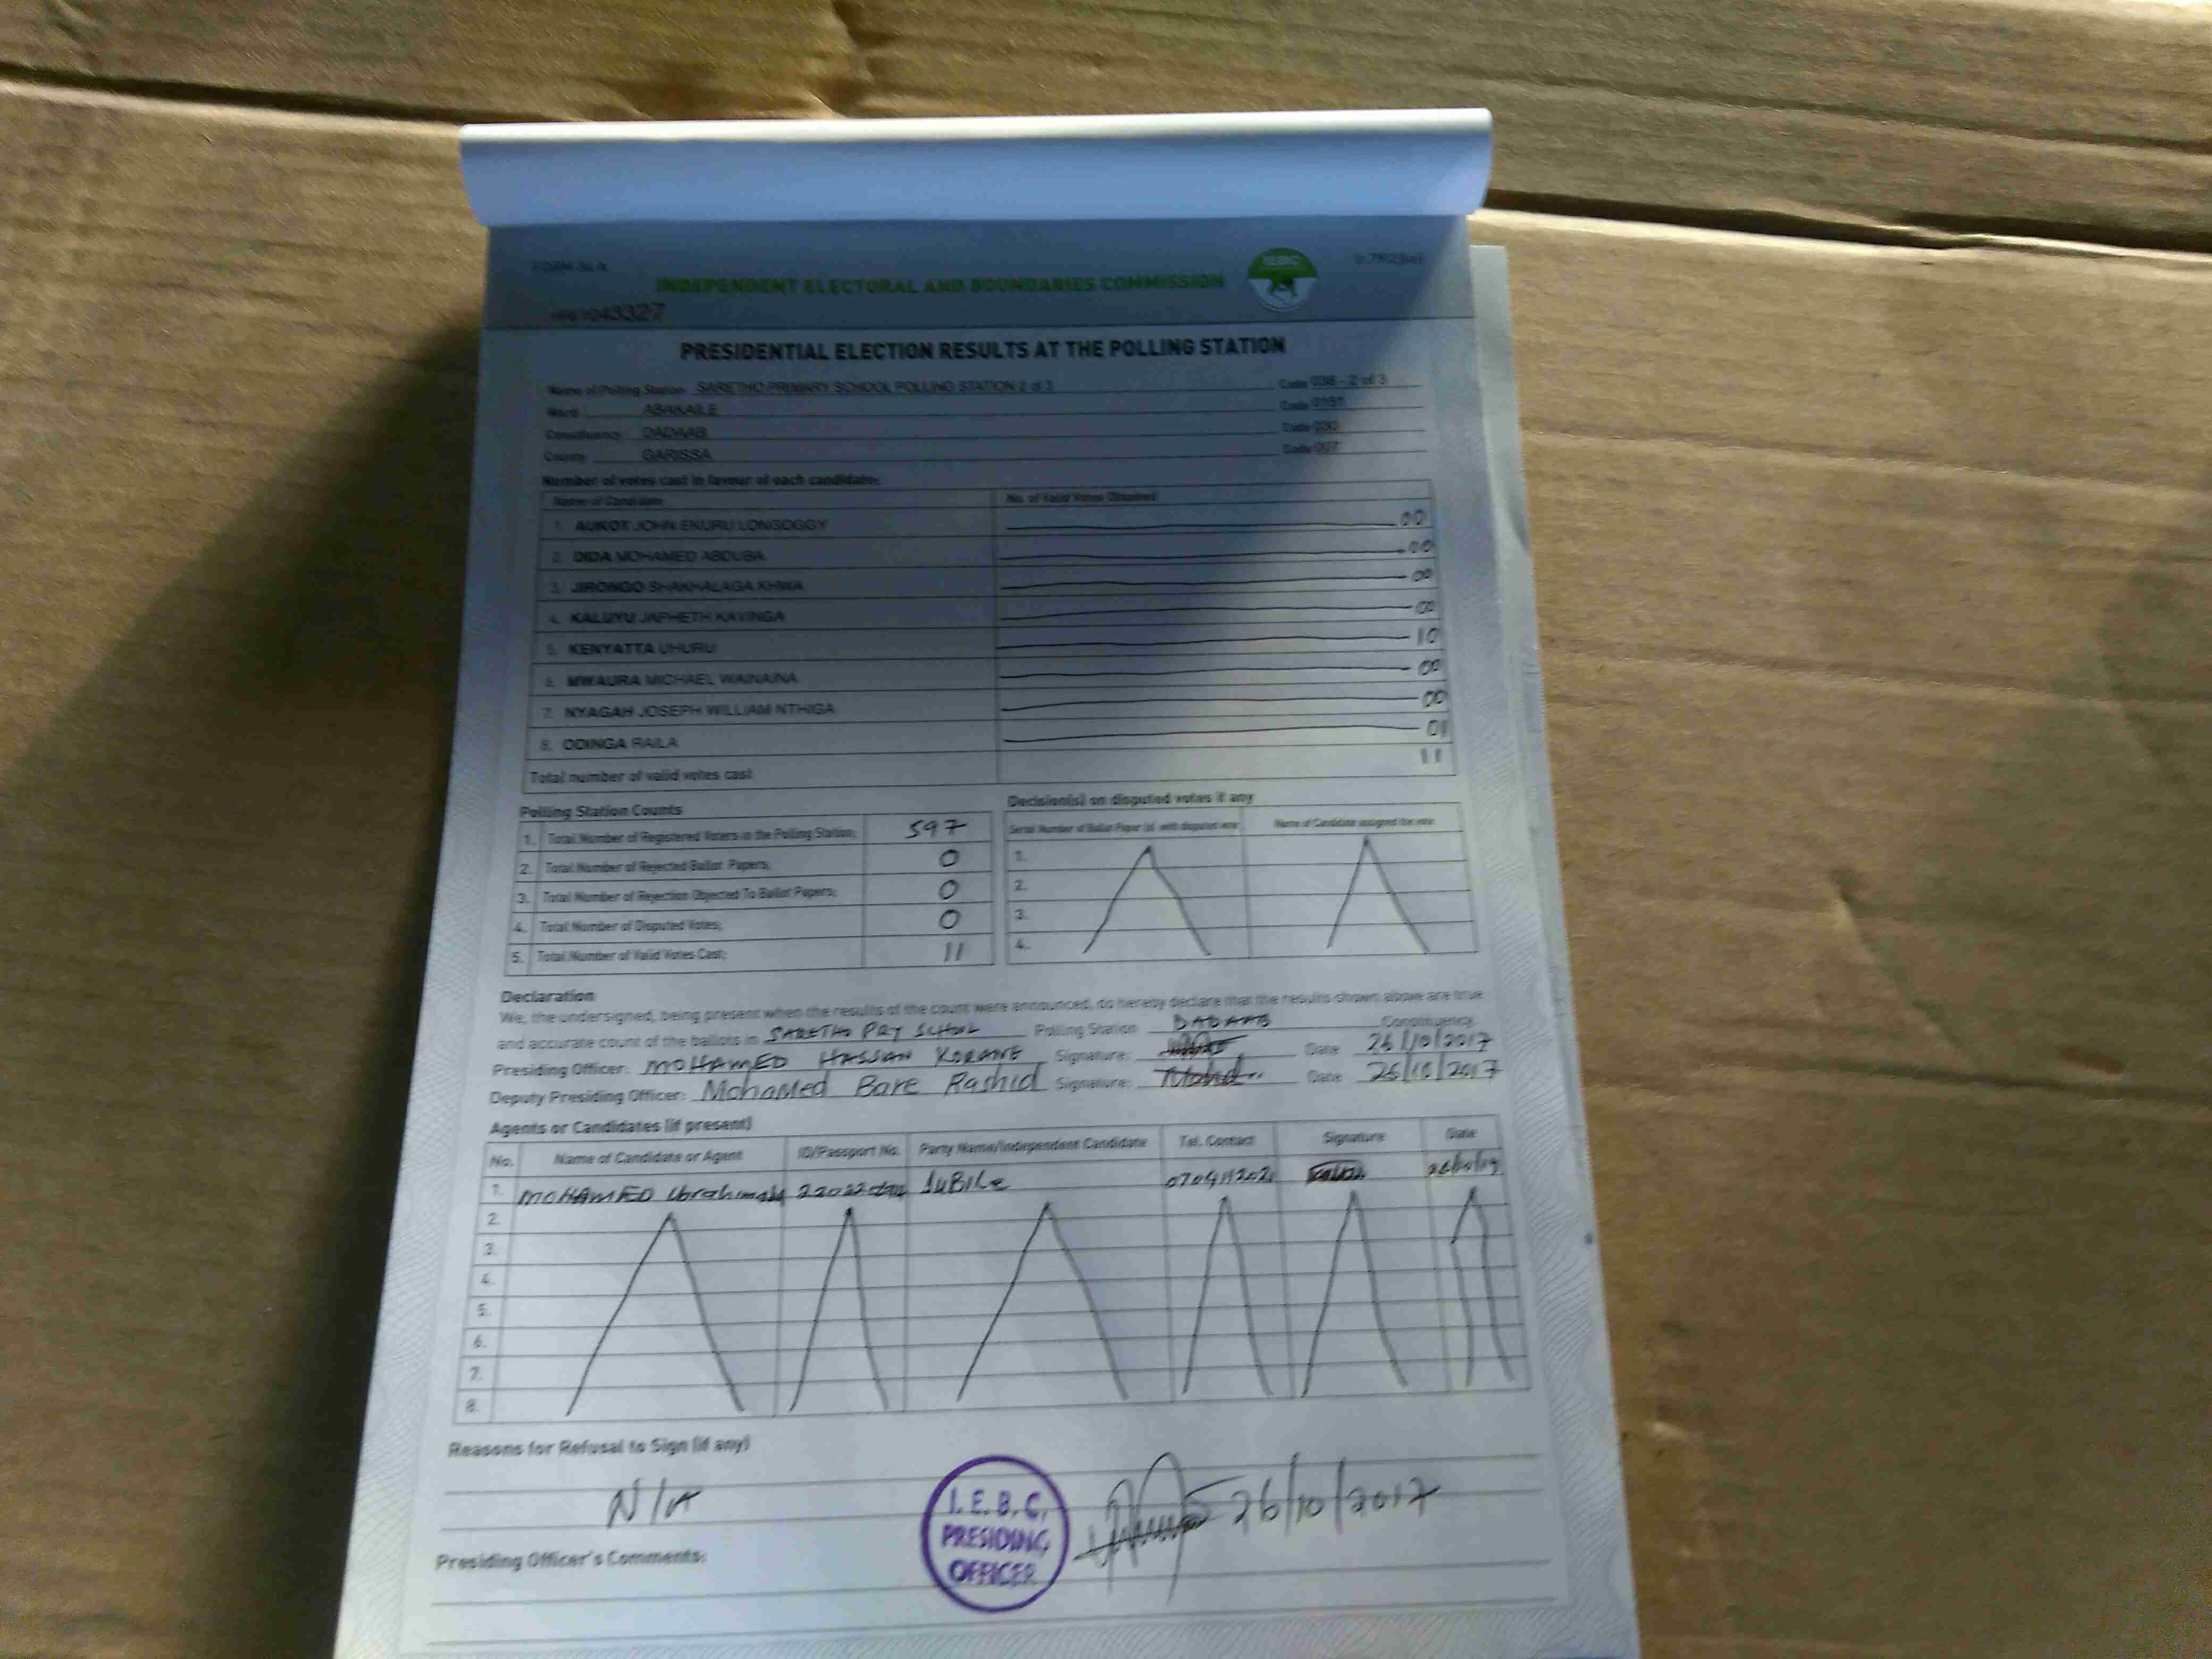 FORM 34A
INDEPENDENT ELECTORAL AND BOUNDARIES COMMISSION
IEBC
43327
PRESIDENTIAL ELECTION RESULTS AT THE POLLING STATION
Name of Polling Station SARETHO PRIMARY SCHOOL POLLING STATION 2 of 3 Code 038 - 2 of 3
Ward ABAKAILE Code 0151
Constituency DADAAB Code 030
County GARISSA Code 007
Number of votes cast in favour of each candidate:
Name of Candidate No. of Valid Votes Obtained
1. AUKOT JOHN EKURU LONGOGGY 00
2. DIDA MOHAMED ABDUBA 00
3. JIRONGO SHAKHALAGA KHWA 00
4. KALUYU JAPHETH KAVINGA 00
5. KENYATTA UHURU 10
6. MWAURA MICHAEL WAINAINA 00
7. NYAGAH JOSEPH WILLIAM NTHIGA 00
8. ODINGA RAILA 01
Total number of valid votes cast 11
Polling Station Counts
1. Total Number of Registered Voters in the Polling Station; 597
2. Total Number of Rejected Ballot Papers; 0
3. Total Number of Rejection Objected To Ballot Papers; 0
4. Total Number of Disputed Votes; 0
5. Total Number of Valid Votes Cast; 11
Decision(s) on disputed votes if any
Serial Number of Ballot Paper (s) with disputed vote Name of Candidate assigned the vote
1.
2.
3.
4.
Declaration
We, the undersigned, being present when the results of the count were announced, do hereby declare that the results shown above are true
and accurate count of the ballots in SARETHO PRY SCHOOL Polling Station DADAAB Constituency
Presiding Officer: MOHAMED HASSAN KORANE Signature: Date 26/10/2017
Deputy Presiding Officer: Mohamed Bare Rashid Signature: Mohd Date 26/10/2017
Agents or Candidates (if present)
No. Name of Candidate or Agent ID/Passport No. Party Name/Independent Candidate Tel. Contact Signature Date
1. MOHAMED JUBILE
2.
3.
4.
5.
6.
7.
8.
Reasons for Refusal to Sign (if any)
N/A
I.E.B.C.
PRESIDING
OFFICER
26/10/2017
Presiding Officer's Comments: